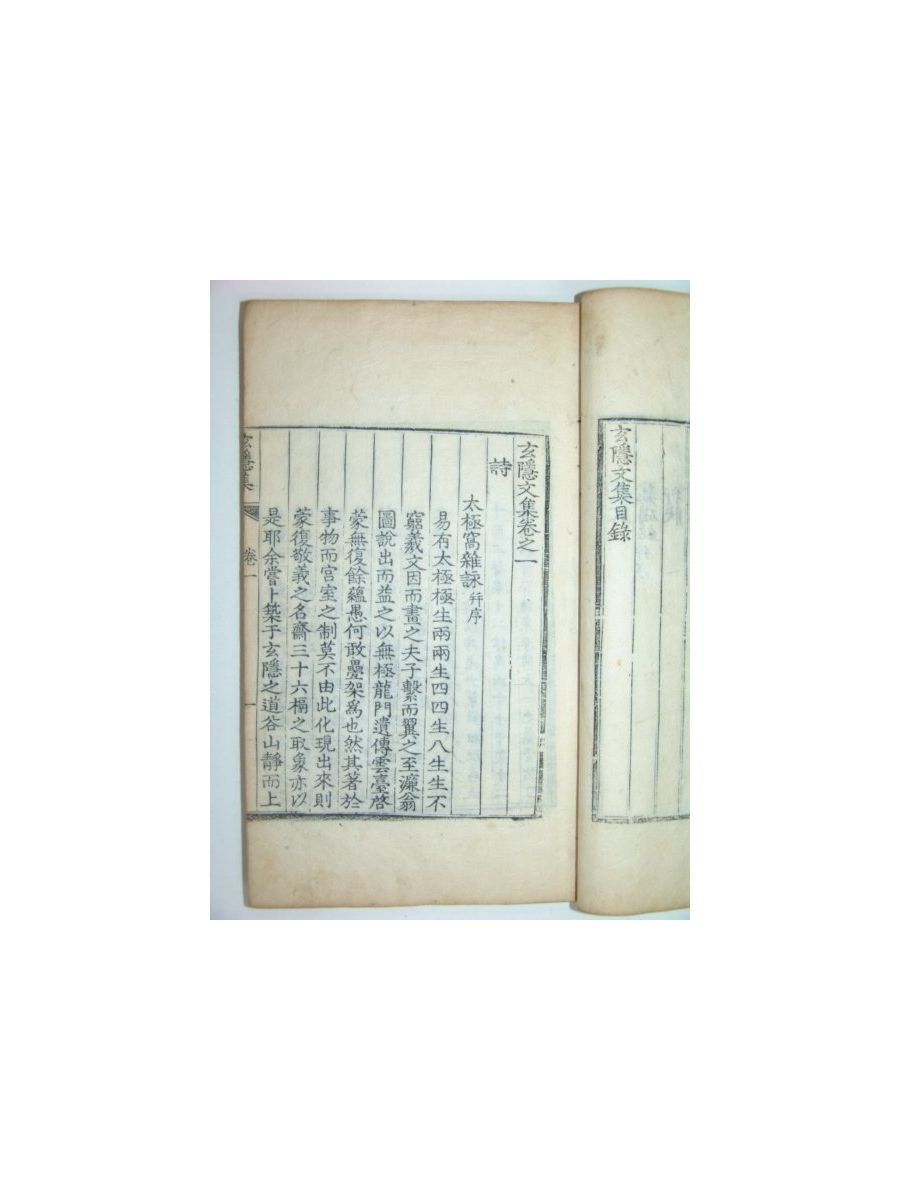 玄隱文集目錄
玄隱文集卷之一
詩
太極窩雜詠 幷序
易有太極極生兩兩生四四生八生生不
窮羲文因而畫之夫子繫而翼之至濂翁
圖說出而益之以無極龍門遺傳雲臺啓
蒙無復餘蘊愚何敢疊架爲也然其著於
事物而宮室之制莫不由此化現出來則
蒙復敬義之名齋三十六榻之取象亦以
是耶余嘗卜築于玄隱之道谷山靜而上
玄隱集 卷一 一